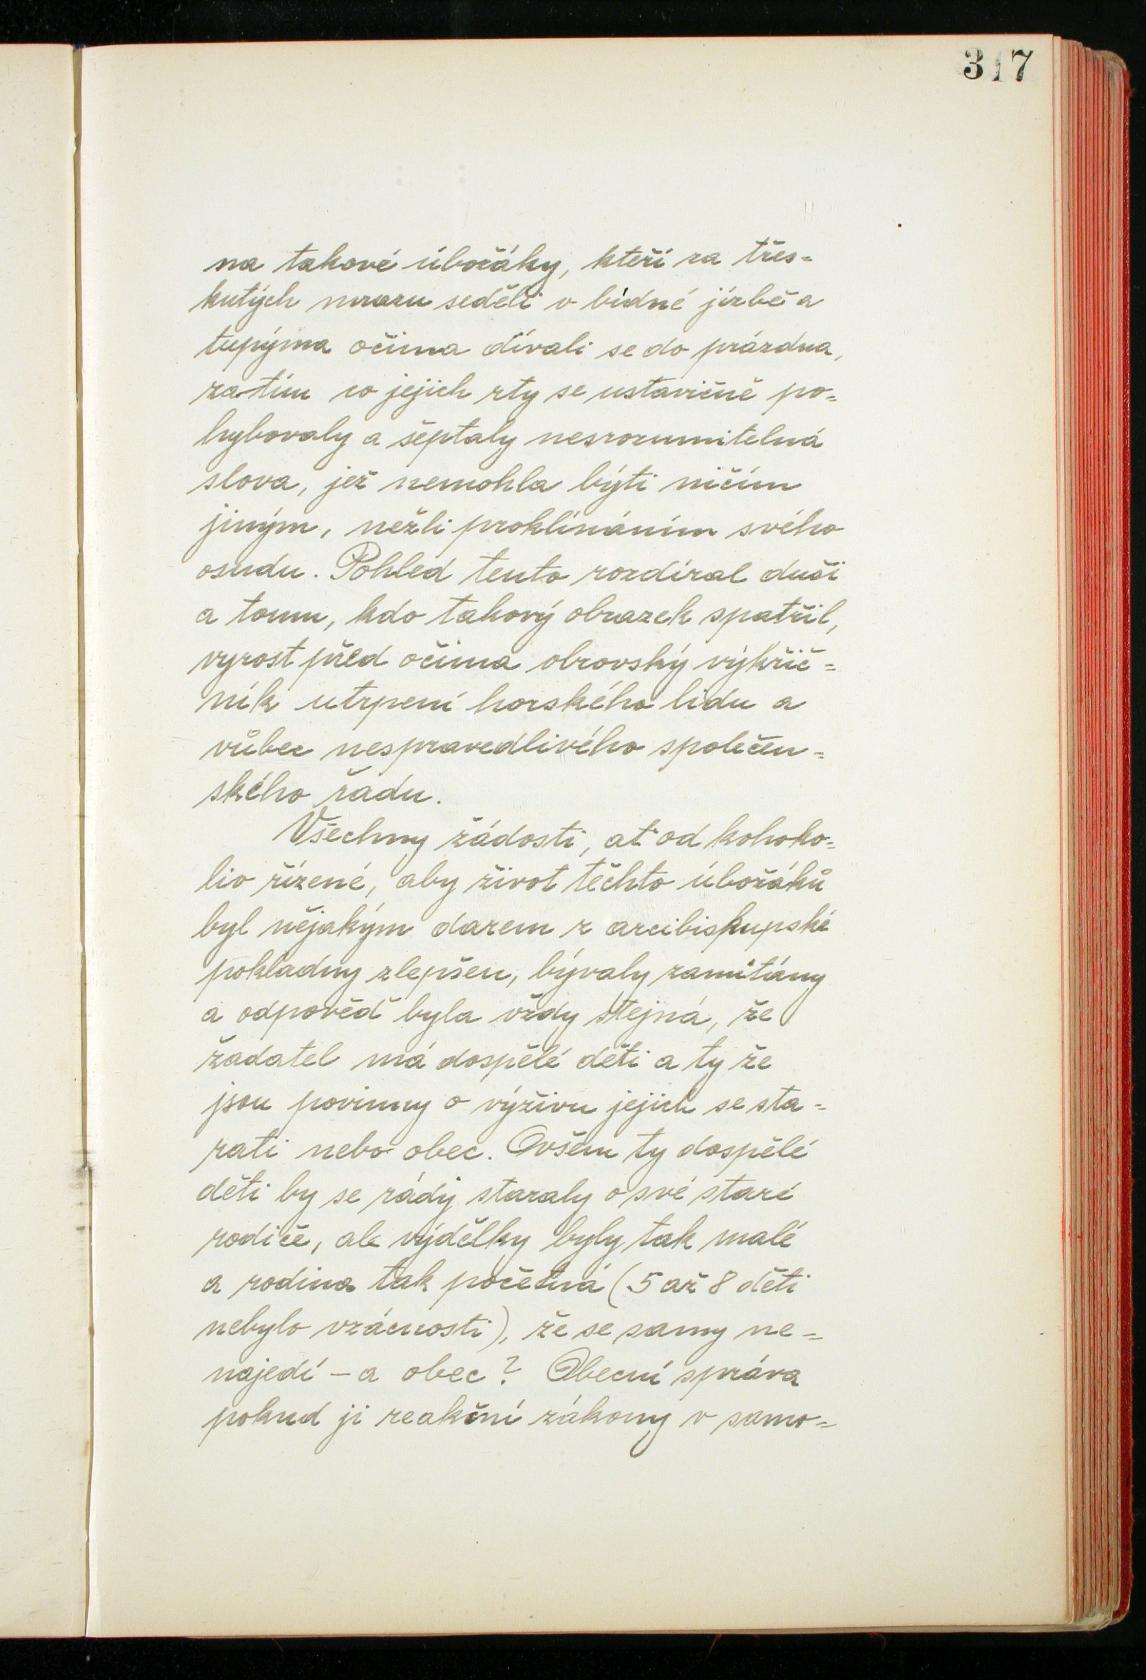 317
na takové úbožáky, kteří za třes-
kutých mrazu seděli v bídné jizbě a
tupýma očima dívali se do prázdna,
za tím co jejich rty se ustavičně po-
hybovaly a šeptaly nesrozumitelná
slova, jež nemohla býti ničím
jiným, nežli proklínáním svého
osudu. Pohled tento rozdíral duši
a tomu, kdo takový obrazek spatřil,
vyrost před očima obrovský výkřič-
ník utrpení horského lidu a
vůbec nespravedlivého společen-
ského řádu.
Všechny žádosti, ať od kohoko-
liv řízené, aby život těchto úbožáků
byl nějakým darem z arcibiskupské
pokladny zlepšen, bývaly zamítány
a odpověď byla vždy stejná, že
žadatel má dospělé děti a ty že
jsou povinny o výživu jejich se sta-
rati nebo obec. Ovšem ty dospělé
děti by se rády staraly o své staré
rodiče, ale výdělky byly tak malé
a rodina tak početná (5 až 8 dětí
nebylo vzácností), že se samy ne-
najedí – a obec? Obecní správa
pokud ji reakční zákony v samo-